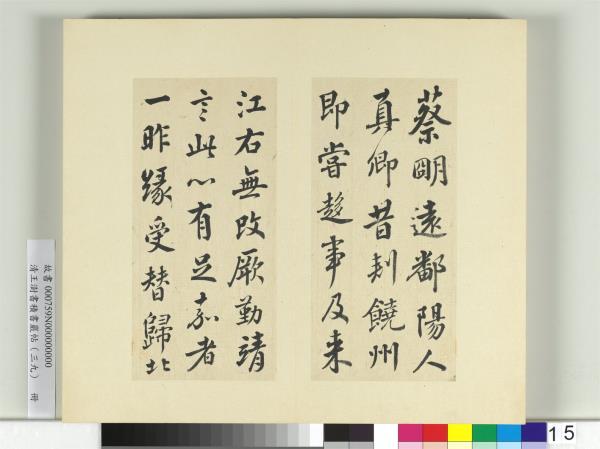 蔡明遠鄱陽人
真卿昔刾饒州
即嘗趍事及来
江右無改厥勤靖
言此心有足嘉者
一昨緣受替歸北
故書000759N000000000
清王澍書積書巖帖（三九） 冊
15